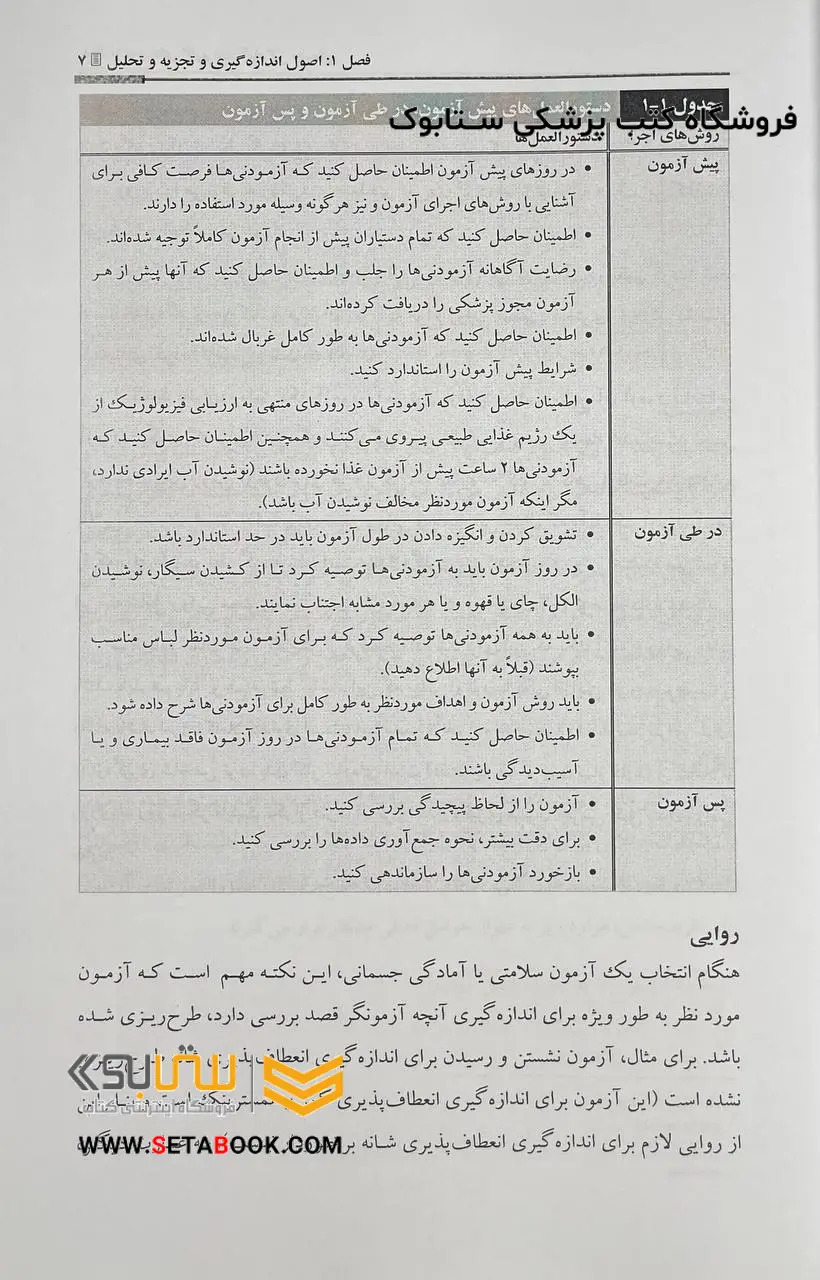 فصل ۱: اصول اندازه‌گیری و تجزیه و تحلیل ۷
جدول ۱-۱ دستورالعمل‌های پیش آزمون، در طی آزمون و پس آزمون
فروشگاه کتب پزشکی ستابوک
روش‌های اجرا دستورالعمل‌ها
پیش آزمون • در روزهای پیش آزمون اطمینان حاصل کنید که آزمودنی‌ها فرصت کافی برای
آشنایی با روش‌های اجرای آزمون و نیز هرگونه وسیله مورد استفاده را دارند.
• اطمینان حاصل کنید که تمام دستیاران پیش از انجام آزمون کاملاً توجیه شده‌اند.
• رضایت آگاهانه آزمودنی‌ها را جلب و اطمینان حاصل کنید که آنها پیش از هر
آزمون مجوز پزشکی را دریافت کرده‌اند.
• اطمینان حاصل کنید که آزمودنی‌ها به طور کامل غربال شده‌اند.
• شرایط پیش آزمون را استاندارد کنید.
• اطمینان حاصل کنید که آزمودنی‌ها در روزهای منتهی به ارزیابی فیزیولوژیک از
یک رژیم غذایی طبیعی پیروی می‌کنند و همچنین اطمینان حاصل کنید که
آزمودنی‌ها ۲ ساعت پیش از آزمون غذا نخورده باشند (نوشیدن آب ایرادی ندارد،
مگر اینکه آزمون موردنظر مخالف نوشیدن آب باشد).
در طی آزمون • تشویق کردن و انگیزه دادن در طول آزمون باید در حد استاندارد باشد.
• در روز آزمون باید به آزمودنی‌ها توصیه کرد تا از کشیدن سیگار، نوشیدن
الکل، چای یا قهوه و یا هر مورد مشابه اجتناب نمایند.
• باید به همه آزمودنی‌ها توصیه کرد که برای آزمون موردنظر لباس مناسب
بپوشند (قبلاً به آنها اطلاع دهید).
• باید روش آزمون و اهداف موردنظر به طور کامل برای آزمودنی‌ها شرح داده شود.
• اطمینان حاصل کنید که تمام آزمودنی‌ها در روز آزمون فاقد بیماری و یا
آسیب‌دیدگی باشند.
پس آزمون • آزمون را از لحاظ پیچیدگی بررسی کنید.
• برای دقت بیشتر، نحوه جمع‌آوری داده‌ها را بررسی کنید.
• بازخورد آزمودنی‌ها را سازماندهی کنید.
روایی
هنگام انتخاب یک آزمون سلامتی یا آمادگی جسمانی، این نکته مهم است که آزمون
مورد نظر به طور ویژه برای اندازه‌گیری آنچه آزمونگر قصد بررسی دارد، طرح‌ریزی شده
باشد. برای مثال، آزمون نشستن و رسیدن برای اندازه‌گیری انعطاف‌پذیری
نشده است (این آزمون برای اندازه‌گیری انعطاف‌پذیری
از روایی لازم برای اندازه‌گیری انعطاف‌پذیری شانه
ستابوک
فروشگاه اینترنتی کتاب
WWW.SETABOOK.COM